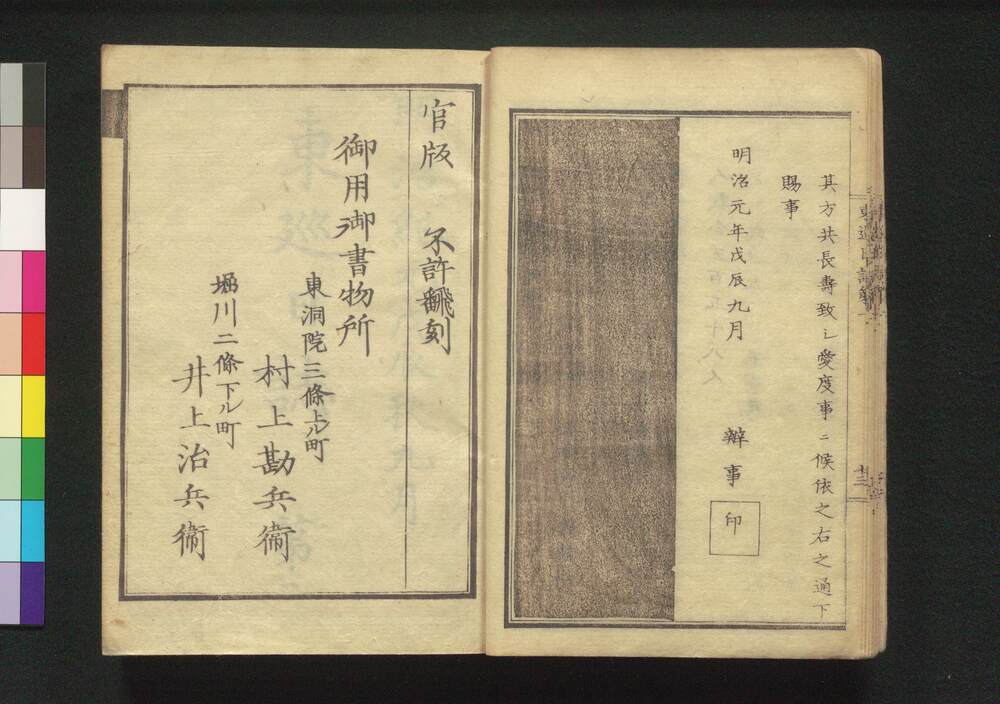 其方共長壽致シ愛度事ニ候依之右之通下
賜事
明治元年戊辰九月　辨事 印
官版　不許翻刻
御用御書物所
東洞院三條上ル町
村上勘兵衛
堀川二條下ル町
井上治兵衛